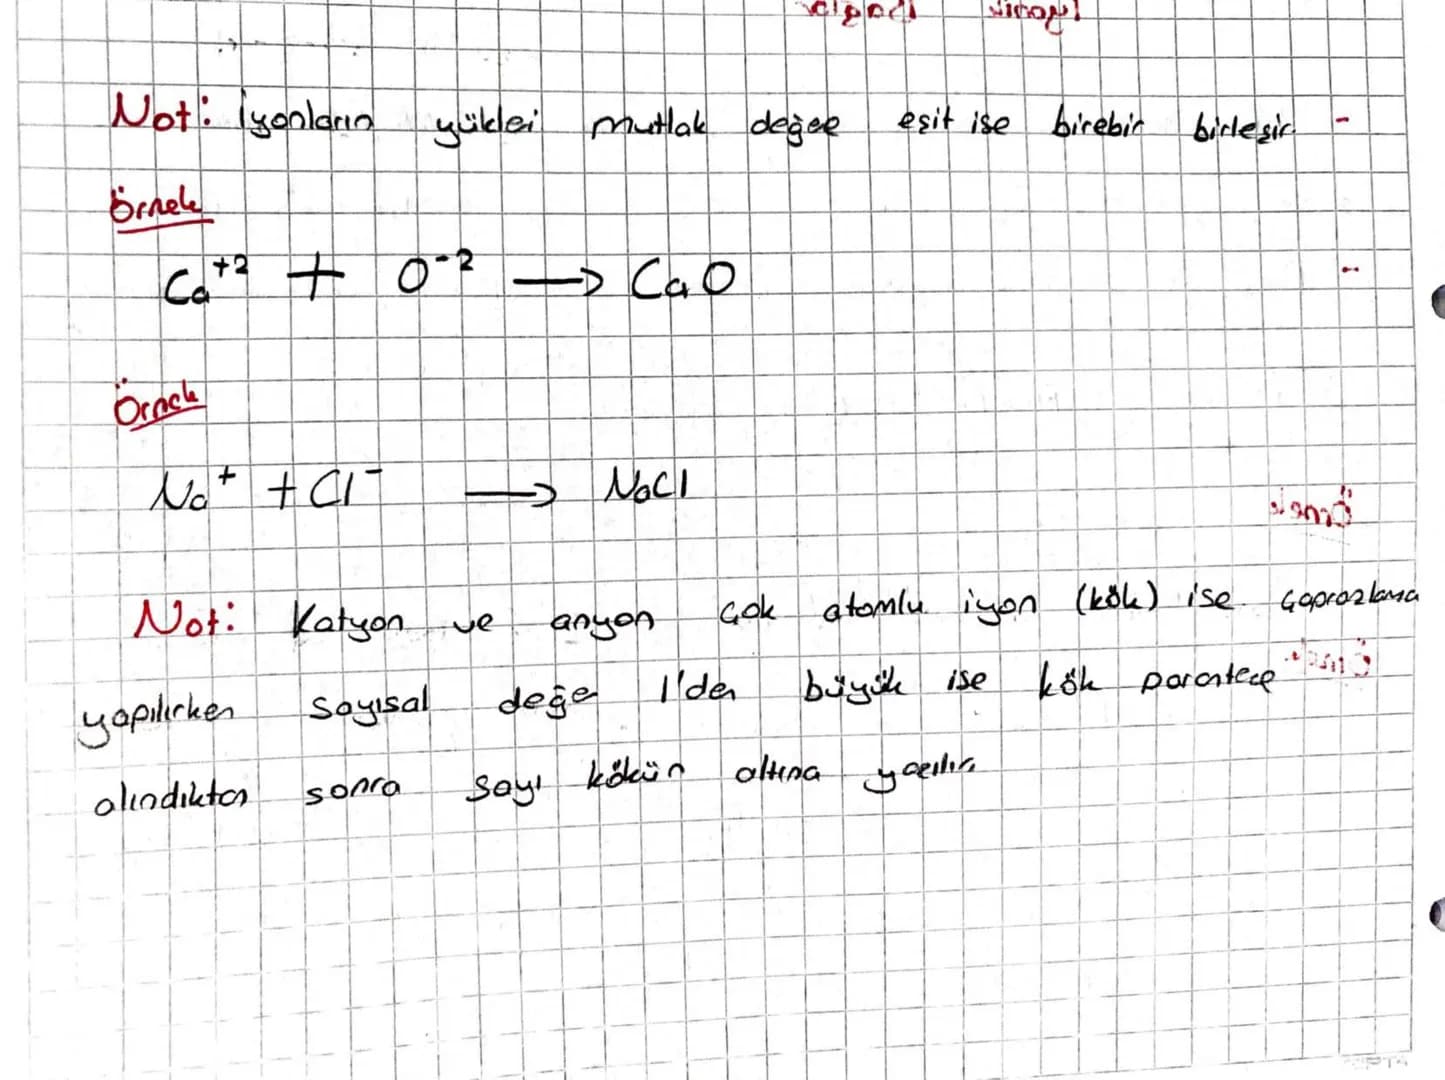 Not: İyonların yüklei mutlak değee eşit ise birebir birleşir
Örnek
Ca⁺² + O⁻² → CaO
Örnek
Na⁺ + Cl⁻ → NaCl
Not: Katyon ve anyon çok atomlu iyon (kök) ise çaprazlama
yapılırken sayısal değe 1'den büyük ise kök parantece
alındıktan sonra sayı kökün altına yazılır.